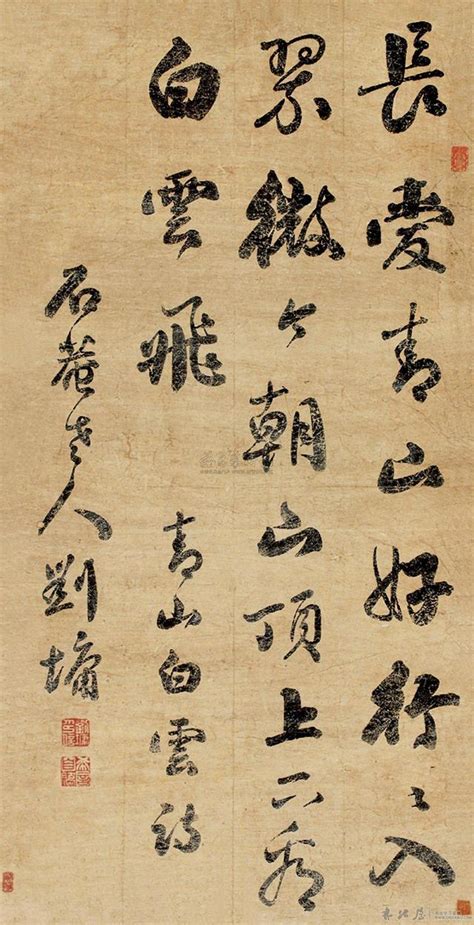 長愛青山好行〻入
翠微今朝山頂上下看
白雲飛 青山白雲詩
石菴老人劉墉